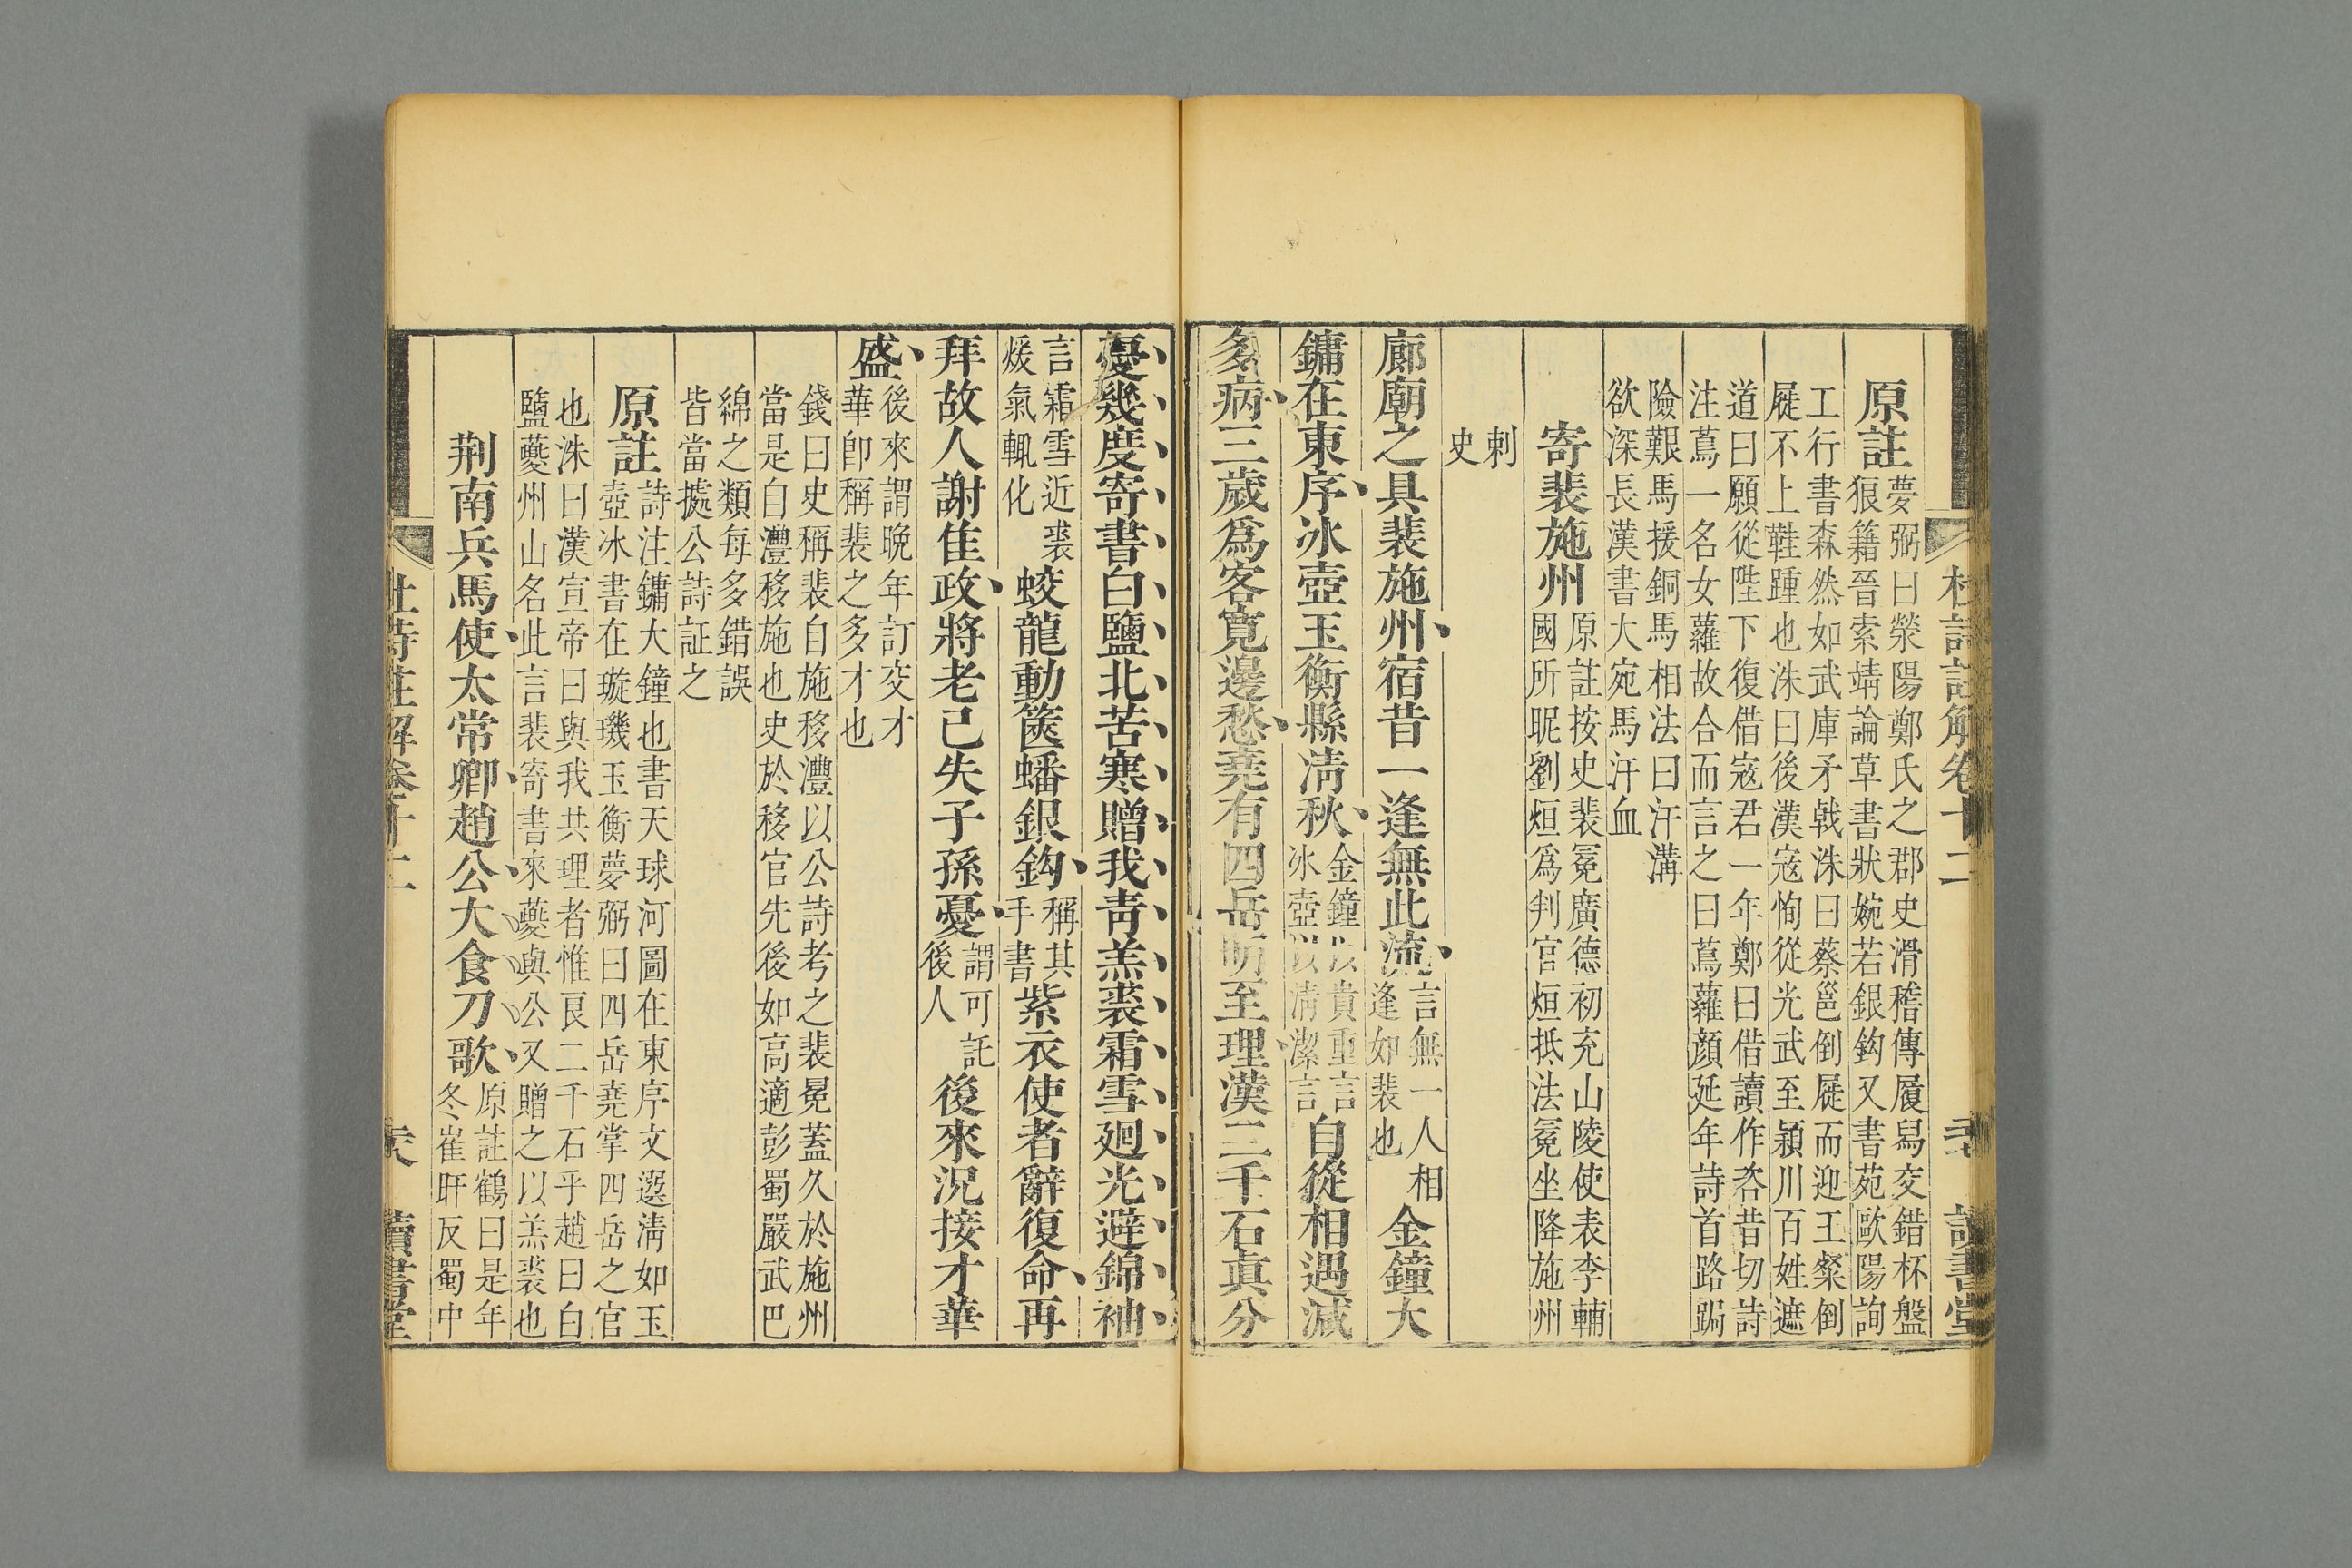 杜詩註解卷十二
讀書堂
原註夢弼曰滎陽鄭氏之郡史滑稽傳履舄交錯杯盤
狼籍晉索靖論草書狀婉若銀鈎又書苑歐陽詢
工行書森然如武庫矛戟洙曰蔡邕倒屣而迎王粲倒
屣不上鞋踵也洙曰後漢寇恂從光武至潁川百姓遮
道曰願從陛下復借寇君一年鄭曰借讀作咨昔切詩
注蔦一名女蘿故合而言之曰蔦蘿顏延年詩首路跼
險艱馬援銅馬相法曰汗溝
欲深長漢書大宛馬汗血
寄裴施州原註按史裴冕廣德初充山陵使表李輔
國所昵劉烜爲判官烜抵法冕坐降施州
刺
史
廊廟之具裴施州宿昔一逢無此流言無一人相
逢如裴也金鐘大
鏞在東序冰壺玉衡縣清秋金鐘以貴重言
冰壺以清潔言自從相遇減
多病三歲爲客寛邊愁堯有四岳明至理漢二千石眞分
憂幾度寄書白鹽北苦寒贈我青羔裘霜雪廻光避錦袖
言霜雪近裘
煖氣輒化蛟龍動篋蟠銀鈎稱其
手書紫衣使者辭復命再
拜故人謝佳政將老已失子孫憂謂可託
後人後來况接才華
盛後來謂晚年訂交才
華卽稱裴之多才也
錢曰史稱裴自施移澧以公詩考之裴冕蓋久於施州
當是自澧移施也史於移官先後如高適彭蜀嚴武巴
綿之類每多錯誤
皆當據公詩証之
原註詩注鏞大鐘也書天球河圖在東序文選清如玉
壺冰書在璇璣玉衡夢弼曰四岳堯掌四岳之官
也洙曰漢宣帝曰與我共理者惟良二千石乎趙曰白
鹽夔州山名此言裴寄書來夔與公又贈之以羔裘也
荆南兵馬使太常卿趙公大食刀歌原註鶴曰是年
冬崔旰反蜀中
杜詩註解卷十二
讀書堂